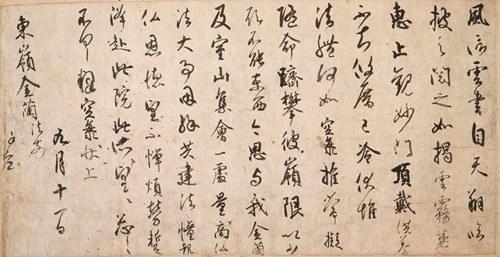 風信雲書自天翔臨
披之閲之如揭雲霧兼
惠止觀妙門頂戴供養
不知攸厝已冷伏惟
法體何如空海推常擬
隨命躋攀彼嶺限以少
願不能東西今思与我金蘭
及室山集會一處量商仏
法大事因緣共建法幢報
仏恩德望不憚煩勞蹔
降赴此院此所望〻忩〻
不具釋空海状上
九月十一日
東嶺金蘭法前
謹空